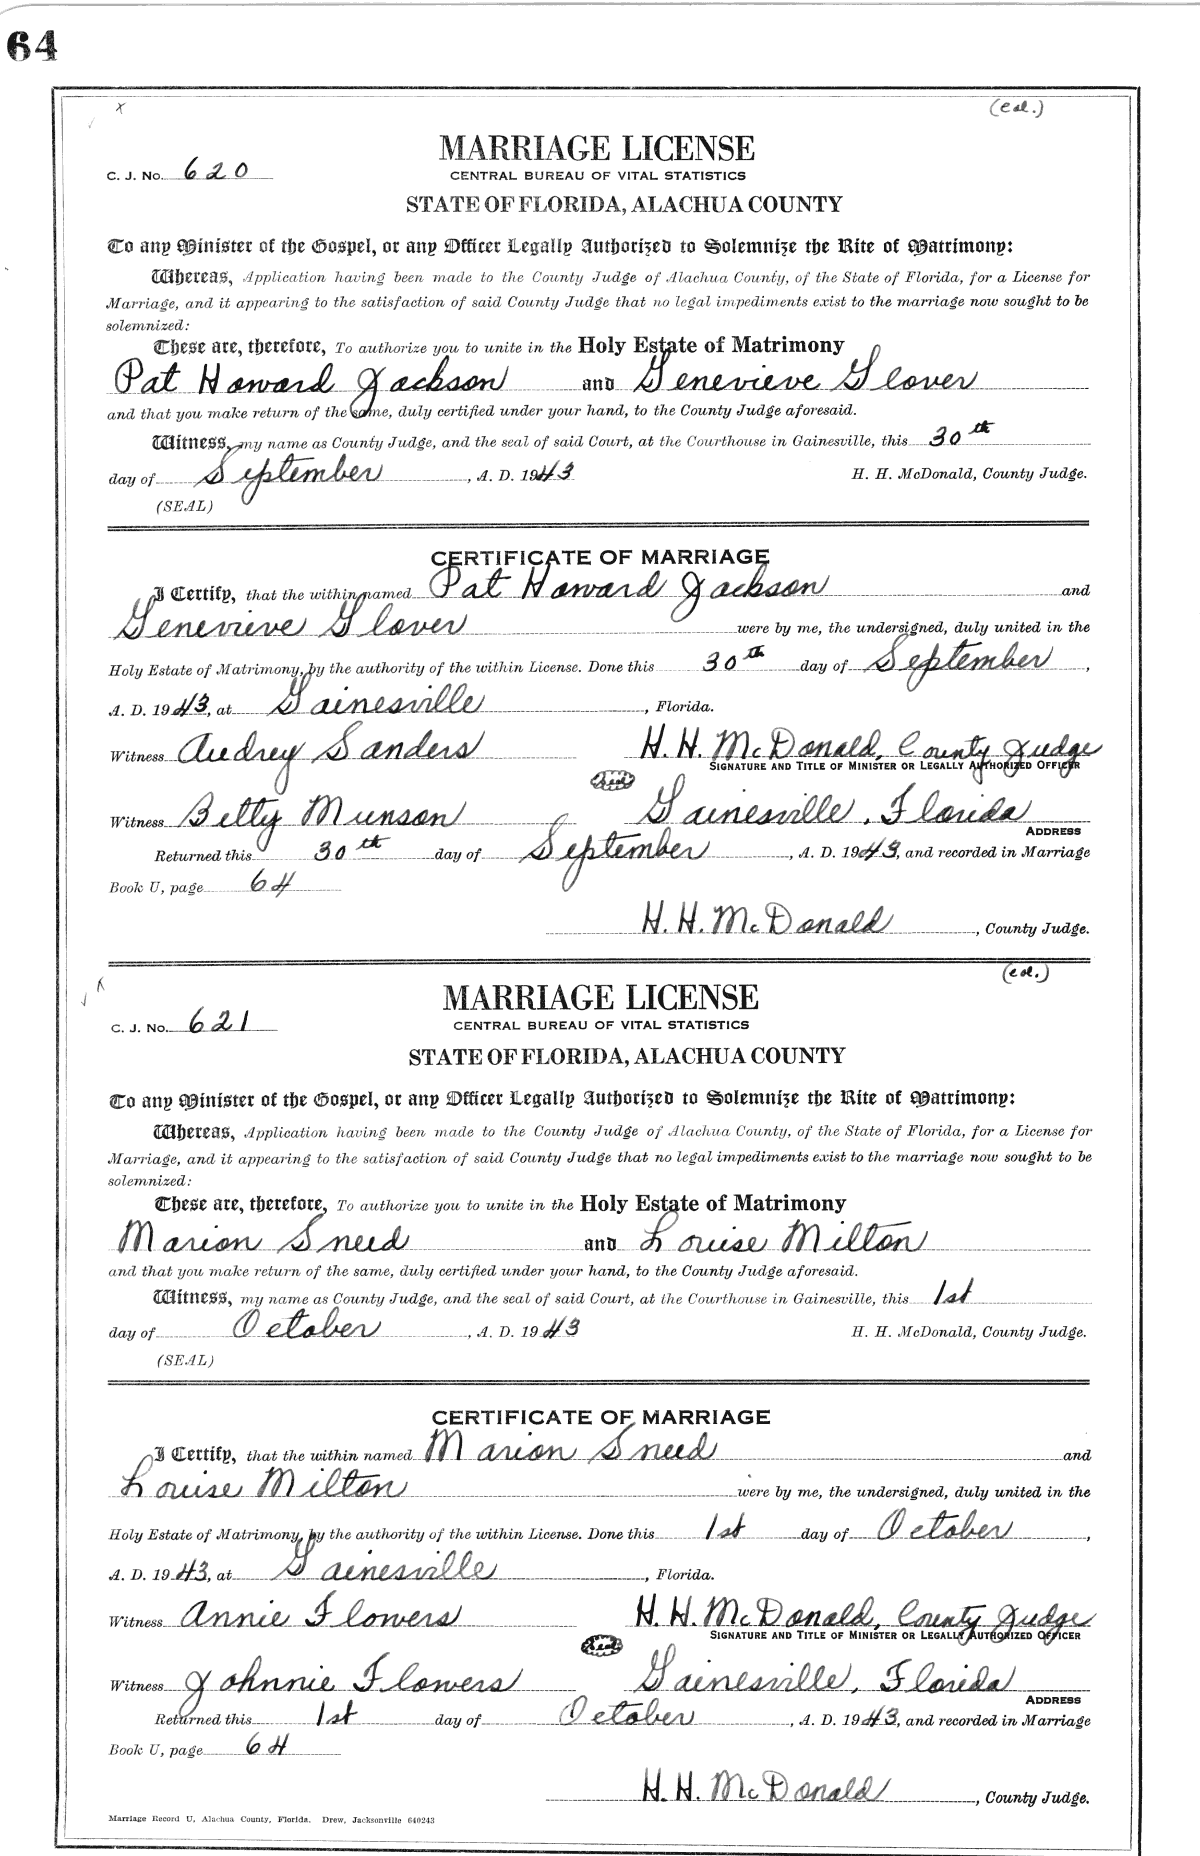 64
(Col.)
MARRIAGE LICENSE
C. J. No. 620
CENTRAL BUREAU OF VITAL STATISTICS
STATE OF FLORIDA, ALACHUA COUNTY
To any Minister of the Gospel, or any Officer Legally Authorized to Solemnize the Rite of Matrimony:
Whereas, Application having been made to the County Judge of Alachua County, of the State of Florida, for a License for
Marriage, and it appearing to the satisfaction of said County Judge that no legal impediments exist to the marriage now sought to be
solemnized:
These are, therefore, To authorize you to unite in the Holy Estate of Matrimony
Pat Howard Jackson and Genevieve Glover
and that you make return of the same, duly certified under your hand, to the County Judge aforesaid.
Witness, my name as County Judge, and the seal of said Court, at the Courthouse in Gainesville, this 30th
day of September, A. D. 1943 H. H. McDonald, County Judge.
(SEAL)
CERTIFICATE OF MARRIAGE
I Certify, that the within named Pat Howard Jackson and
Genevieve Glover were by me, the undersigned, duly united in the
Holy Estate of Matrimony, by the authority of the within License. Done this 30th day of September,
A. D. 1943, at Gainesville, Florida.
Witness Audrey Sanders H. H. McDonald, County Judge
SIGNATURE AND TITLE OF MINISTER OR LEGALLY AUTHORIZED OFFICER
(Seal)
Witness Betty Munson Gainesville, Florida
ADDRESS
Returned this 30th day of September, A. D. 1943, and recorded in Marriage
Book U, page 64
H. H. McDonald, County Judge.
(Col.)
MARRIAGE LICENSE
C. J. No. 621
CENTRAL BUREAU OF VITAL STATISTICS
STATE OF FLORIDA, ALACHUA COUNTY
To any Minister of the Gospel, or any Officer Legally Authorized to Solemnize the Rite of Matrimony:
Whereas, Application having been made to the County Judge of Alachua County, of the State of Florida, for a License for
Marriage, and it appearing to the satisfaction of said County Judge that no legal impediments exist to the marriage now sought to be
solemnized:
These are, therefore, To authorize you to unite in the Holy Estate of Matrimony
Marion Sneed and Louise Milton
and that you make return of the same, duly certified under your hand, to the County Judge aforesaid.
Witness, my name as County Judge, and the seal of said Court, at the Courthouse in Gainesville, this 1st
day of October, A. D. 1943 H. H. McDonald, County Judge.
(SEAL)
CERTIFICATE OF MARRIAGE
I Certify, that the within named Marion Sneed and
Louise Milton were by me, the undersigned, duly united in the
Holy Estate of Matrimony, by the authority of the within License. Done this 1st day of October,
A. D. 1943, at Gainesville, Florida.
Witness Annie Flowers H. H. McDonald, County Judge
SIGNATURE AND TITLE OF MINISTER OR LEGALLY AUTHORIZED OFFICER
(Seal)
Witness Johnnie Flowers Gainesville, Florida
ADDRESS
Returned this 1st day of October, A. D. 1943, and recorded in Marriage
Book U, page 64
H. H. McDonald, County Judge.
Marriage Record U, Alachua County, Florida. Drew, Jacksonville 640243